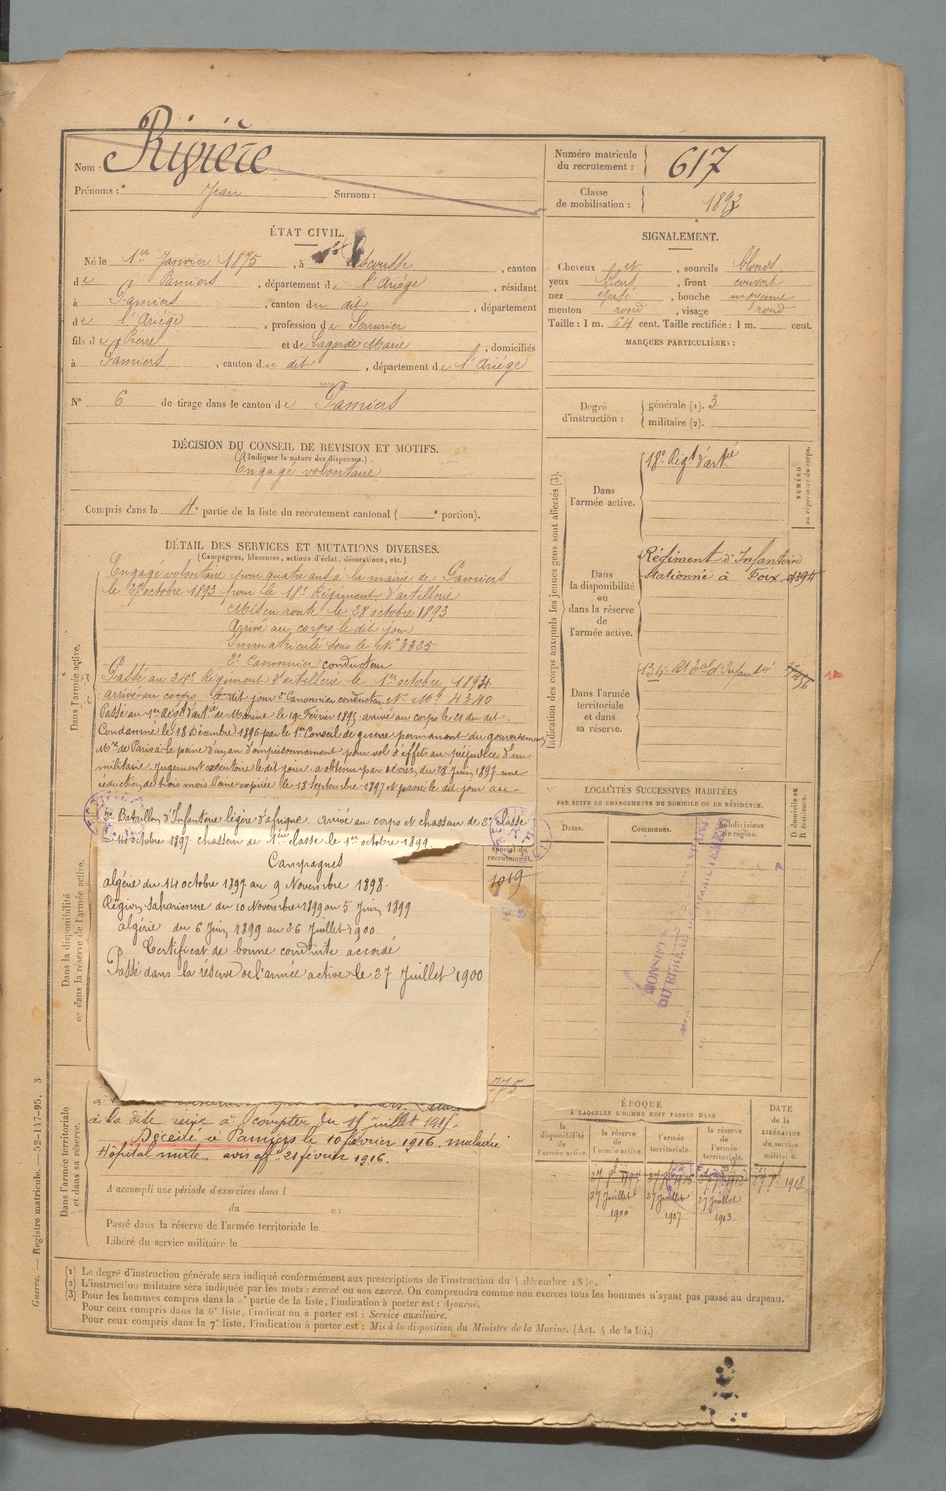 Nom : Rivière
Prénoms : Jean Surnom :
Numéro matricule du recrutement : 617
Classe de mobilisation : 1893
ÉTAT CIVIL.
Né le 1er Janvier 1875, à Escosse, canton
de Pamiers, département de l'Ariège, résidant
à Pamiers, canton du dit, département
de l'Ariège, profession de Serrurier
fils de Pierre et de Lagarde Marie, domiciliés
à Pamiers, canton du dit, département de l'Ariège
N° 6 de tirage dans le canton de Pamiers
SIGNALEMENT.
Cheveux et, sourcils blonds
yeux bleus, front couvert
nez, bouche moyenne
menton rond, visage rond
Taille : 1 m. 64 cent. Taille rectifiée : 1 m. cent.
MARQUES PARTICULIÈRES :
Degré d'instruction : générale (1). 3
militaire (2).
DÉCISION DU CONSEIL DE REVISION ET MOTIFS.
(Indiquer la nature des dispenses.)
Engagé volontaire
Compris dans la 4e partie de la liste du recrutement cantonal ( e portion).
DÉTAIL DES SERVICES ET MUTATIONS DIVERSES.
(Campagnes, blessures, actions d'éclat, décorations, etc.)
Dans l'armée active.
Engagé volontaire pour quatre ans à la mairie de Pamiers
le 27 octobre 1893 pour le 18e Régiment d'artillerie
Mis en route le 28 octobre 1893
Arrivé au corps le dit jour
Immatriculé sous le N° 3335
2e Canonnier conducteur
Passé au 34e Régiment d'artillerie le 1er octobre 1894
arrivé au corps le dit jour 2e Canonnier conducteur et N° Mle 4340
Passé au 1er Régt d'artie de Marine le 19 Février 1895 arrivé au corps le 21 du dit.
Condamné le 18 Décembre 1896 par le 1er Conseil de guerre permanent du gouvernement
Mre de Paris à la peine d'un an d'emprisonnement pour vol d'effets au préjudice d'un
militaire. Jugement exécutoire le dit jour. a obtenu par décision du 28 Juin 1897 une
réduction de trois mois Peine expirée le 18 Septembre 1897 et passé le dit jour au
3e Bataillon d'Infanterie légère d'afrique. Arrivé au corps et chasseur de 2e classe
le 14 octobre 1897 chasseur de 1ère classe le 1er octobre 1899.
Campagnes
algérie du 14 octobre 1897 au 9 Novembre 1898.
Région Saharienne du 10 Novembre 1899 au 5 Juin 1899
algérie du 6 Juin 1899 au 26 Juillet 1900.
Certificat de bonne conduite accordé
Passé dans la réserve de l'armée active le 27 Juillet 1900
Dans la disponibilité ou dans la réserve de l'armée active.
recrutement.
1019
775
Dans l'armée territoriale et dans sa réserve.
à la dite usine à compter du 15 juillet 1915.
Décédé à Pamiers le 10 février 1916. maladie
Hôpital mixte. avis offel 21 février 1916.
A accompli une période d'exercices dans l
du au
Passé dans la réserve de l'armée territoriale le
Libéré du service militaire le
Indication des corps auxquels les jeunes gens sont affectés (3).
NUMÉRO au répertoire du corps.
Dans l'armée active.
18e Régt d'artie
Dans la disponibilité ou dans la réserve de l'armée active.
Régiment d'Infanterie
Stationné à Foix
Dans l'armée territoriale et dans sa réserve.
LOCALITÉS SUCCESSIVES HABITÉES
PAR SUITE DE CHANGEMENTS DE DOMICILE OU DE RÉSIDENCE.
Dates. Communes. Subdivisions de région. D domicile ou R résidence.
ÉPOQUE
À LAQUELLE L'HOMME DOIT PASSER DANS
la disponibilité de l'armée active.
la réserve de l'armée active.
l'armée territoriale.
la réserve de l'armée territoriale.
DATE de la LIBÉRATION du service militaire.
27 Juillet 1900
27 Juillet 1907
27 Juillet 1913
(1) Le degré d'instruction générale sera indiqué conformément aux prescriptions de l'instruction du 4 décembre
(2) L'instruction militaire sera indiquée par les mots : exercé ou non exercé. On comprendra comme non exercés tous les hommes n'ayant pas passé au drapeau.
(3) Pour les hommes compris dans la 5e partie de la liste, l'indication à porter est : Ajourné.
Pour ceux compris dans la 6e liste, l'indication à porter est : Service auxiliaire.
Pour ceux compris dans la 7e liste, l'indication à porter est : Mis à la disposition du Ministre de la Marine. (Art. 4 de la loi.)
Guerre. — Registre matricule. — 52-147-95. 3